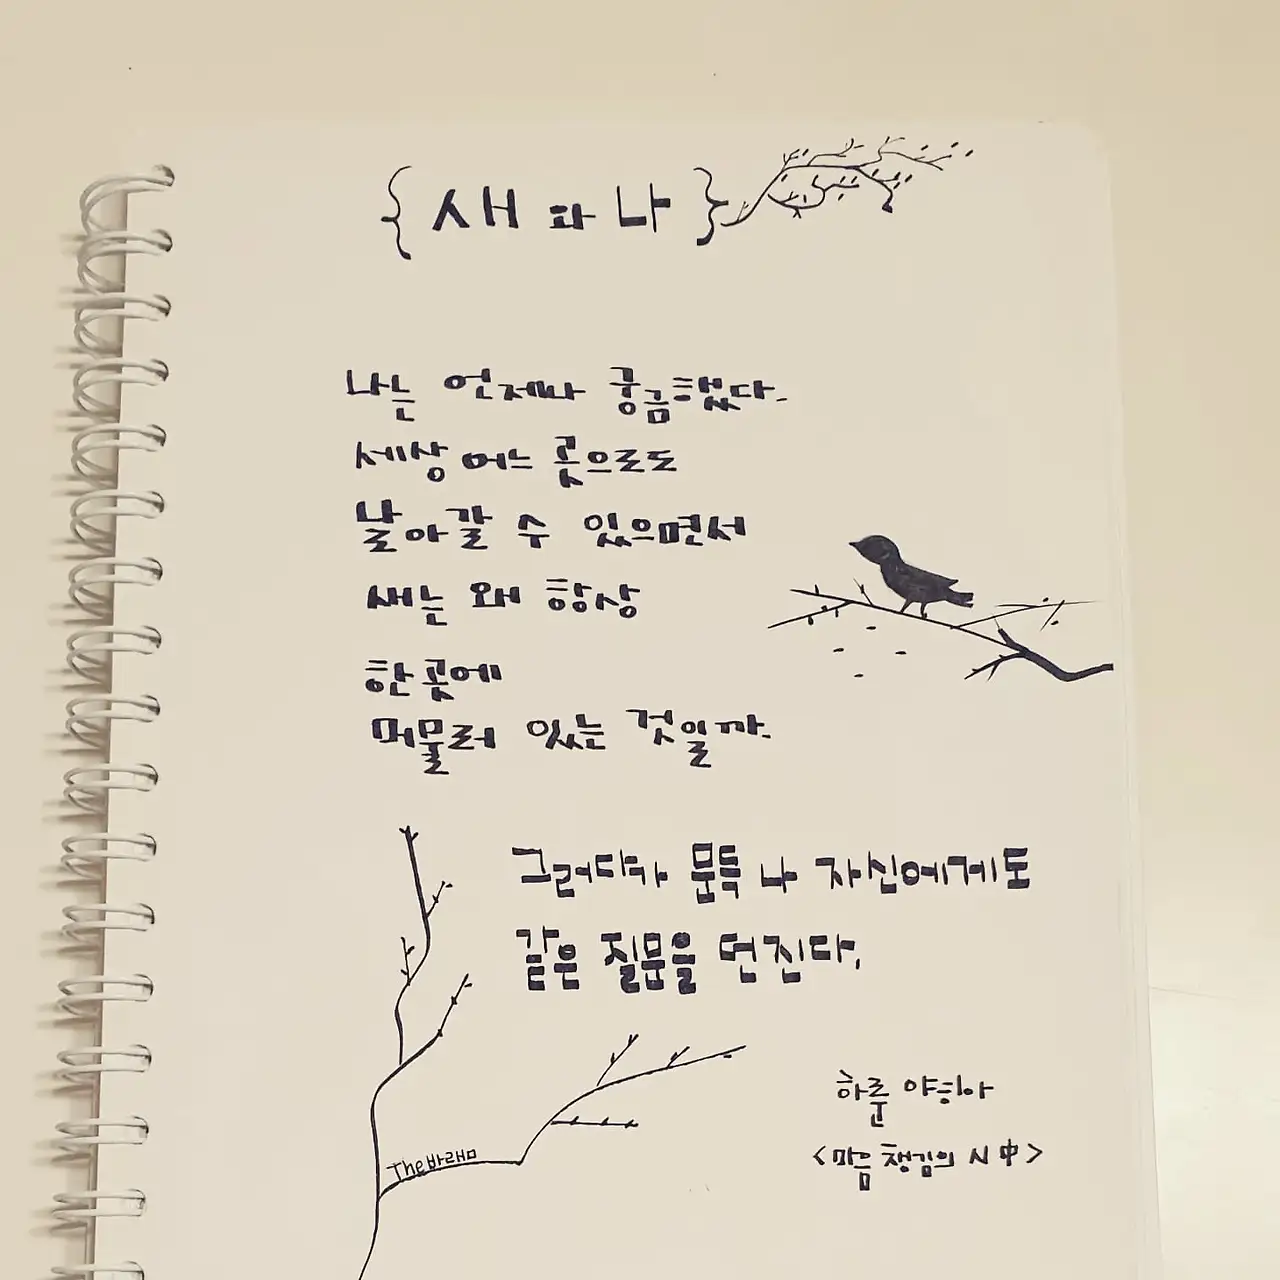 { 새와 나 }
나는 언제나 궁금했다.
세상 어느 곳으로도
날아갈 수 있으면서
새는 왜 항상
한 곳에
머물러 있는 것일까.
그러다가 문득 나 자신에게도
같은 질문을 던진다.
하룬 야히아
<마음 챙김의 시 中>
The 바램